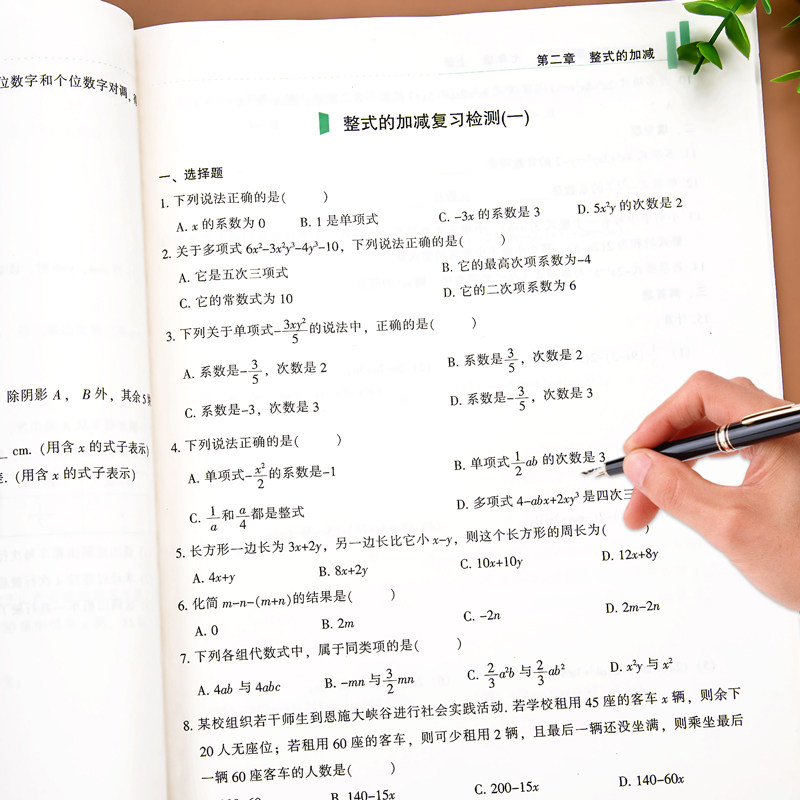 位数字和个位数字对调,
除阴影 A, B 外, 其余5
cm. (用含 x 的式子表示)
(用含 x 的式子表示)
第二章 整式的加减
整式的加减复习检测(一)
一、选择题
1. 下列说法正确的是( )
A. x 的系数为 0 B. 1 是单项式 C. -3x 的系数是 3 D. 5x²y 的次数是 2
2. 关于多项式 6x²-3x²y³-4y³-10, 下列说法正确的是( )
A. 它是五次三项式 B. 它的最高次项系数为-4
C. 它的常数式为 10 D. 它的二次项系数为 6
3. 下列关于单项式-3xy²/5的说法中, 正确的是( )
A. 系数是-3/5, 次数是 2 B. 系数是3/5, 次数是 2
C. 系数是-3, 次数是 3 D. 系数是-3/5, 次数是 3
4. 下列说法正确的是( )
A. 单项式-x²/2的系数是-1 B. 单项式1/2ab 的次数是 3
C. 1/a和a/4都是整式 D. 多项式 4-abx+2xy³是四次三
5. 长方形一边长为 3x+2y, 另一边长比它小 x-y, 则这个长方形的周长为( )
A. 4x+y B. 8x+2y C. 10x+10y D. 12x+8y
6. 化简 m-n-(m+n)的结果是( )
A. 0 B. 2m C. -2n D. 2m-2n
7. 下列各组代数式中, 属于同类项的是( )
A. 4ab 与 4abc B. -mn 与3/2mn C. 2/3a²b 与2/3ab² D. x²y 与 x²
8. 某校组织若干师生到恩施大峡谷进行社会实践活动. 若学校租用 45 座的客车 x 辆, 则余下
20 人无座位; 若租用 60 座的客车, 则可少租用 2 辆, 且最后一辆还没坐满, 则乘坐最后
一辆 60 座客车的人数是( )
B. 140-15x C. 200-15x D. 140-60x